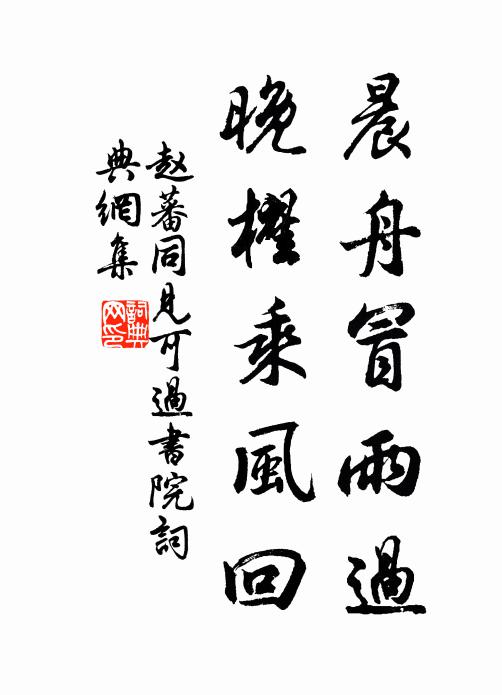 晨舟冒雨過
晚櫂乘風回
赵蕃同見可過書院詞
典網集
詞典
网印